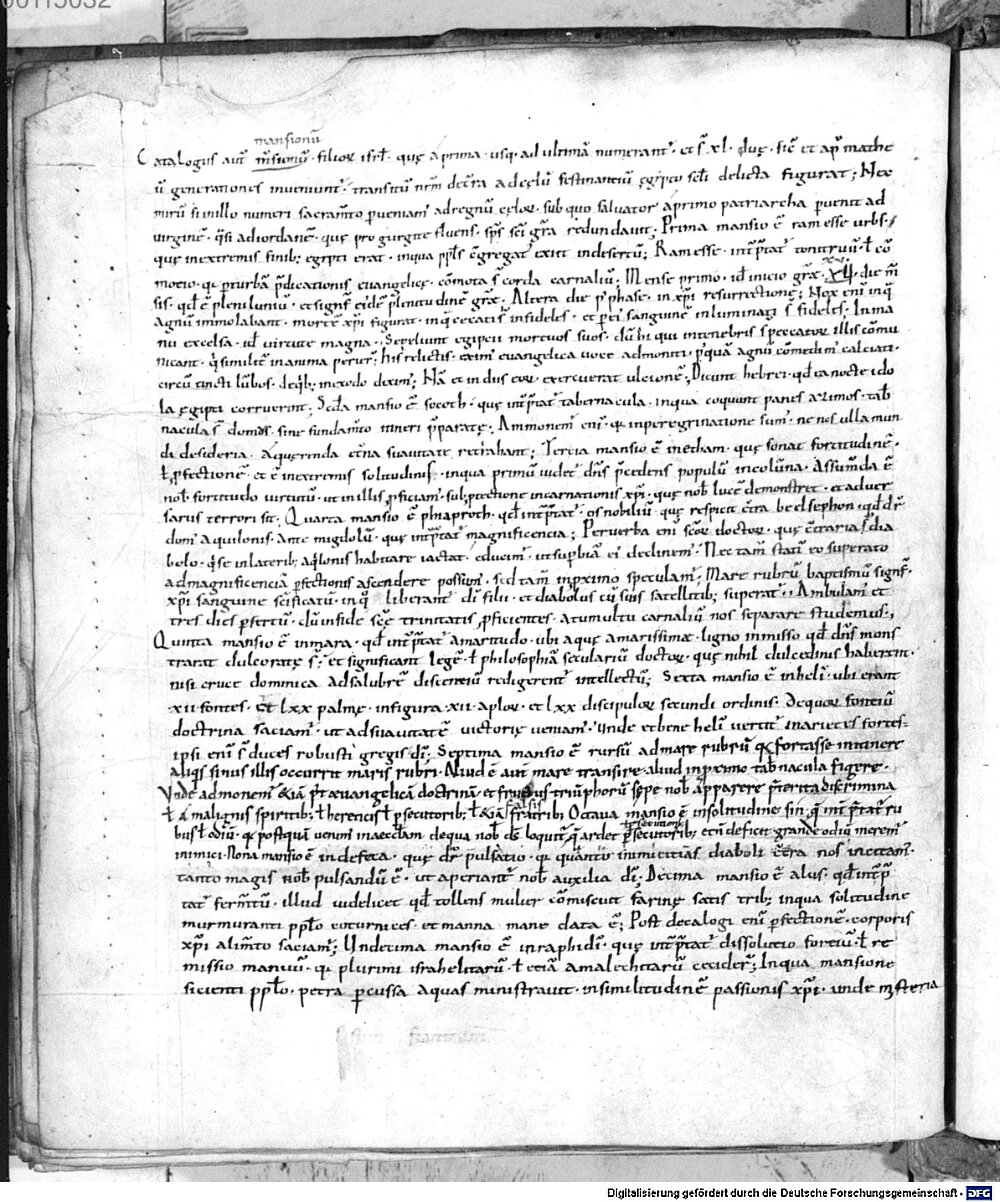 00115032
mansionũ
Catalogus aut̃ m̃sionũ · filior̃ isrł · quę a prima · usq; ad ultimã numerant̃ · et s̃ xl · duę · sic̃ et ap̃ mathe
ũ generationes inveniunt̃ · transitũ nr̃m de tr̃a ad cęlũ festinantiũ egipto scłi delicta figurat ; Nec
mirũ si in illo numeri sacram̃to p̱veniam̃ ad regnũ cęlor̃ · sub quo salvator a primo patriarcha p̱venit ad
virginẽ · q̃si ad iordanẽ · quę pro gurgite fluens · sp̃s sc̃i gr̃a redundavit ; Prima mansio ẽ ramesse urbs
quę in extremis finib; egipti erat · in qua pp̃ls c̃gregat̃ exiit in desertũ ; Ramesse · int̃p̃tat̃ tonitruũ ł co̅
motio · q̃ p̱turbã p̃dicationis evangelicę · cõmota s̃ corda carnaliũ ; Mense primo · id inicio gr̃ę · xv · die m̃
sis · qd̃ ẽ pleniluniũ · et signf̃ eiẽdẽ plenitudinẽ gr̃ę ; Altera die p̃ phase · in xp̃i resurrectione ; Nox eni̅ in q̃
agnũ immolabant · mortẽ xp̃i figurat · in q̃ cecatis infideles · et p̱ ei̅ sanguinẽ inluminati s̃ fideles ; In ma
nu excelsa · id̃ virtute magna ; Sepeliunt egiptii mortuos suos · dũ hi qui in tenebris s̃ peccator̃ illis cõmu
nicant · q̃ similit̃ in anima pereunt̃ ; his relictis · exim̃ evangelica voce admoniti · p̃quã agnũ cõmedim̃ calciati ·
circũcincti lũbos · deq̃lib; in exodo dixim̃ ; Nã et in diis eor̃ exercuerat ulcionẽ ; Dicunt hebrei · qd̃ ea nocte ido
la egipti corruerint ; Scd̃a mansio ẽ socoth · quę int̃p̃tat̃ tabernacula · in qua coquunt panes azimos · tab̃
nacula s̃ domus · sine fundam̃to itineri p̃paratę ; Ammonem̃ eni̅ · q̃ in peregrinatione sum̃ · ne nos ulla mun
di desideria · a querenda etñna suavitate retrahant ; Tercia mansio ẽ in etham · quę sonat fortitudinẽ ·
ł p̱fectionẽ · et ẽ in extremis solitudinis · in qua primũ videt̃ dñs p̃cedens populũ in colũna · Assum̃da ẽ
nob̃ fortitudo virtutũ · ut in illis p̱ficiam̃ · sub p̱tectione incarnationis xp̃i · quę nob̃ lucẽ demonstret · et adver
sarius terrori sit ; Quarta mansio ẽ phiaproth · qd̃ int̃p̃tat̃ · os nobiliũ · quę respicit c̃tra beelsephon · qd̃ dr̃
dom̃ aquilonis · ante migdolũ · quę int̃p̃tat̃ magnificencia ; Per verba eni̅ sc̃or̃ doctor̃ · quę c̃traria s̃ dia
bolo · q̃ se in laterib; aq̃lonis habitare iactat · educim̃ · ut supb̃iã ei̅ declinem̃ · Nec tam̃ statĩ eo superato
ad magnificenciã p̱fectionis ascendere possum̃ · sed tam̃ in p̱ximo speculam̃ ; Mare rubrũ baptismũ signf̃ ·
xp̃i sanguine sc̃ificatũ · in q̃ liberant̃ di̅ filii · et diabolus cũ suis satellitib; superat̃ · Ambulant et
tres dies p̱ desertũ · dũ in fide sc̃ę trinitatis p̱ficientes · a tumultu carnaliũ nos separare studemus ;
Quinta mansio ẽ in mara · qd̃ int̃p̃tat̃ amaritudo · ubi aquę amarissimę · ligno in misso qd̃ dñs mons
trarat dulcoratę s̃ · et significant legẽ · ł philosophiã seculariũ doctor̃ · quę nihil dulcedinis haberent ·
nisi cruce dominica ad salubrẽ discentiũ redigerent̃ intellectũ ; Sexta mansio ẽ in heli̅ · ubi erant
xii fontes · et lxx palmę · in figura xii · aplor̃ · et lxx discipulor̃ secundi ordinis · De quor̃ fontiũ
doctrina saciam̃ · ut ad suavitatẽ victorię veniam̃ · Unde et bene heli̅ vertit̃ in arietes fortes ·
ipsi eni̅ s̃ duces robusti gregis di̅ ; Septima mansio ẽ rursũ ad mare rubrũ q̃ fortasse in itinere
aliq̃s sinus illis occurrit maris rubri · Aliud ẽ aut̃ mare transire · aliud in p̱ximo tab̃nacula figere ·
Unde admonem̃ &iã p̃t evangelicã doctrinã · et fructus triumphorũ sepe nob̃ apparere p̃terita discrimina
falsis
ł a malignis spiritib; ł hereticis ł p̱secutorib; ł &iã fratrib; Octava mansio ẽ in solitudine sin · q̃ int̃p̃tat̃ ru
bus ł odiũ · q̃ postquã venim̃ in aecclã · de qua nob̃ ds̃ loquit̃ · q̃ ardet p̱secutorib; et ñ deficit · grande odiũ merem̃
inimici · Nona mansio ẽ in defeca · quę dr̃ pulsatio · q̃ quanto inimicitias diaboli c̃tra nos incitam̃ ·
tanto magis nob̃ pulsandũ ẽ · ut aperiant̃ nob̃ auxilia di̅ ; Decima mansio ẽ alus · qd̃ int̃p̃
tat̃ ferm̃tũ · illud videlicet qd̃ tollens mulier cõmiscuit farinę satis trib; in qua solitudine
murmuranti pp̃lo coturnices · et manna mane data ẽ ; Post decalogi eni̅ p̱fectionẽ · corporis
xp̃i alim̃to saciam̃ ; Undecima mansio ẽ in raphidi̅ · quę int̃p̃tat̃ dissolutio fortiũ · ł re
missio manuũ · q̃ plurimi israhelitarũ · ł eciã amalechitarũ cecider̃ ; In qua mansione
sicienti pp̃lo · petra p̱cussa aquas ministravit · in similitudinẽ passionis xp̃i · unde mysteria
Digitalisierung gefördert durch die Deutsche Forschungsgemeinschaft · DFG